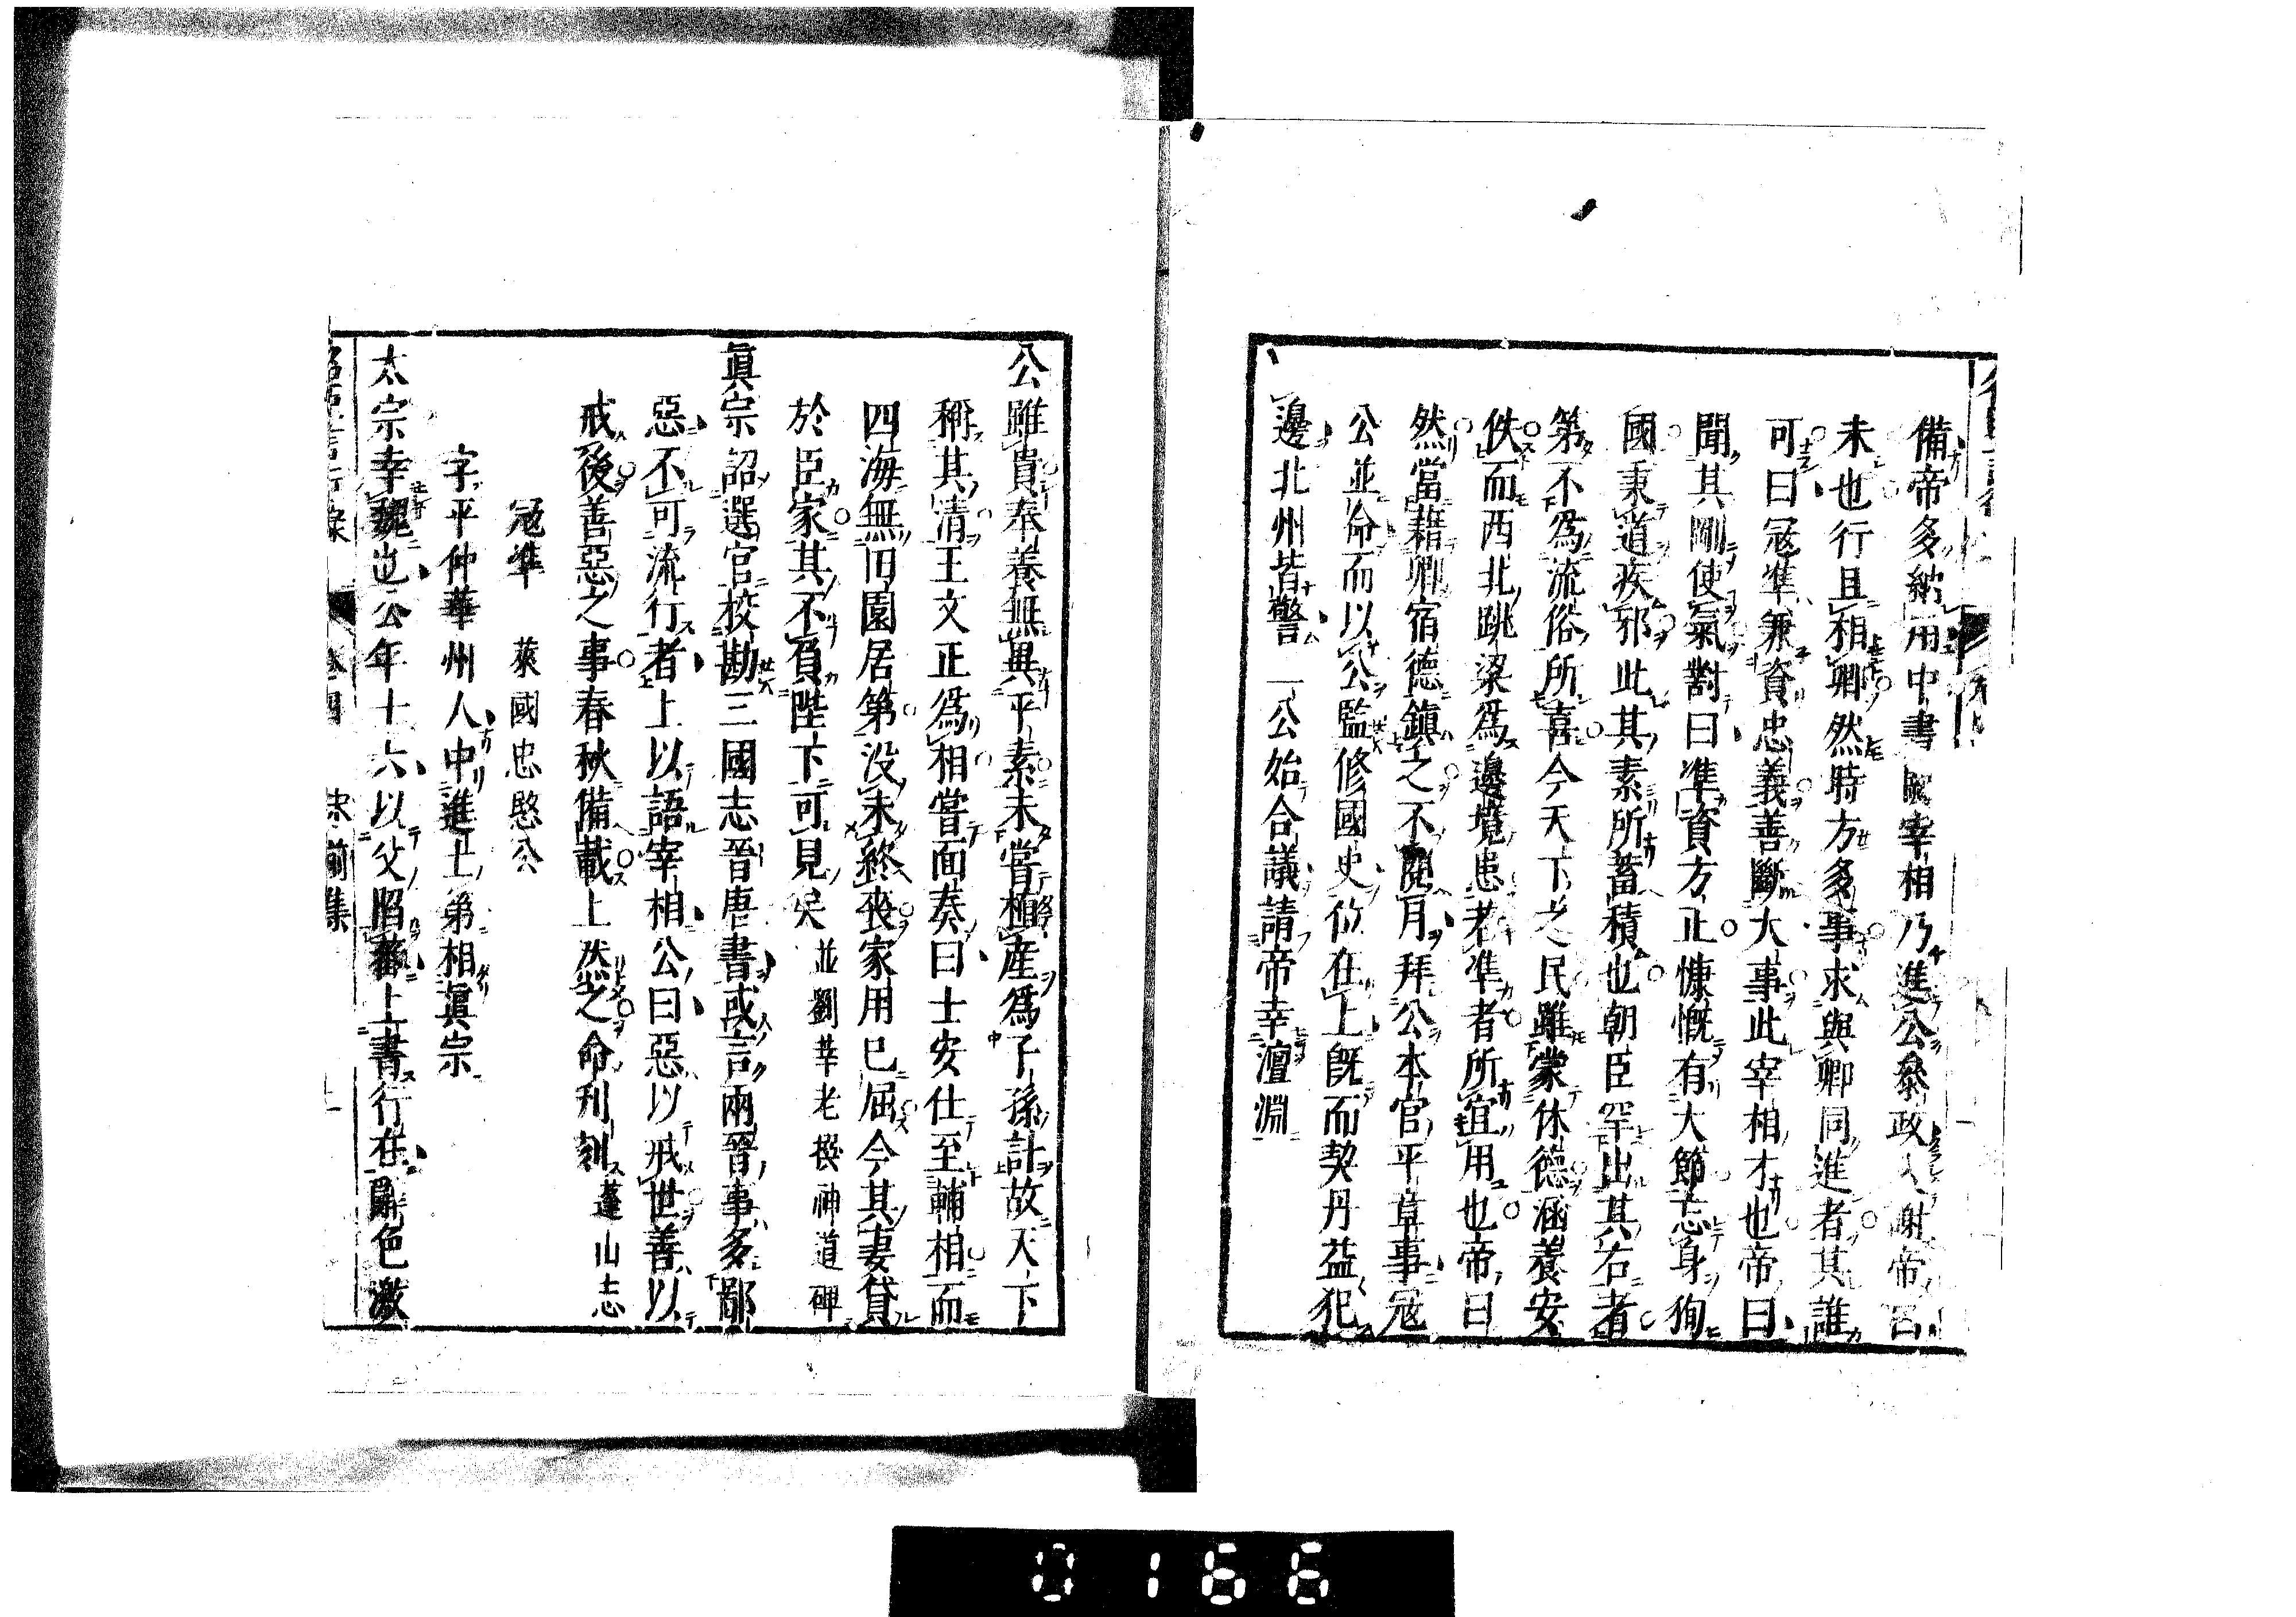 備帝多納用中書闕宰相乃進公參政入謝帝曰
未也行且相卿然時方多事求與卿同進者其誰
可曰冦準兼資忠義善斷大事此宰相才也帝曰
聞其剛使氣對曰準資方正慷慨有大節忘身狥
國秉道疾邪此其素所蓄積也朝臣罕出其右者
第不爲流俗所喜今天下之民雖蒙休德涵養安
佚而西北跳梁爲邊境患若準者所宜用也帝曰
然當藉卿宿德鎮之不閱月拜公本官平章事冦
公並命而以公監修國史位在上旣而契丹益犯
邊北州皆警二公始合議請帝幸澶淵
公雖貴奉養無異平素未嘗植產爲子孫計故天下
稱其清王文正爲相嘗面奏曰士安仕至輔相而
四海無旧園居第没未終喪家用已屈今其妻貸
於臣家其不負陛下可見矣 並劉莘老撰神道碑
眞宗詔選官校勘三國志晉唐書或言兩晉事多鄙
惡不可流行者上以語宰相公曰惡以戒世善以
戒後善惡之事春秋備載上然之命刋刻 蓬山志
冦準 萊國忠愍公
字平仲華州人中進士第相眞宗
太宗幸魏也公年十六以父陷蕃上書行在辭色激
名臣言行錄 卷四 宋前集